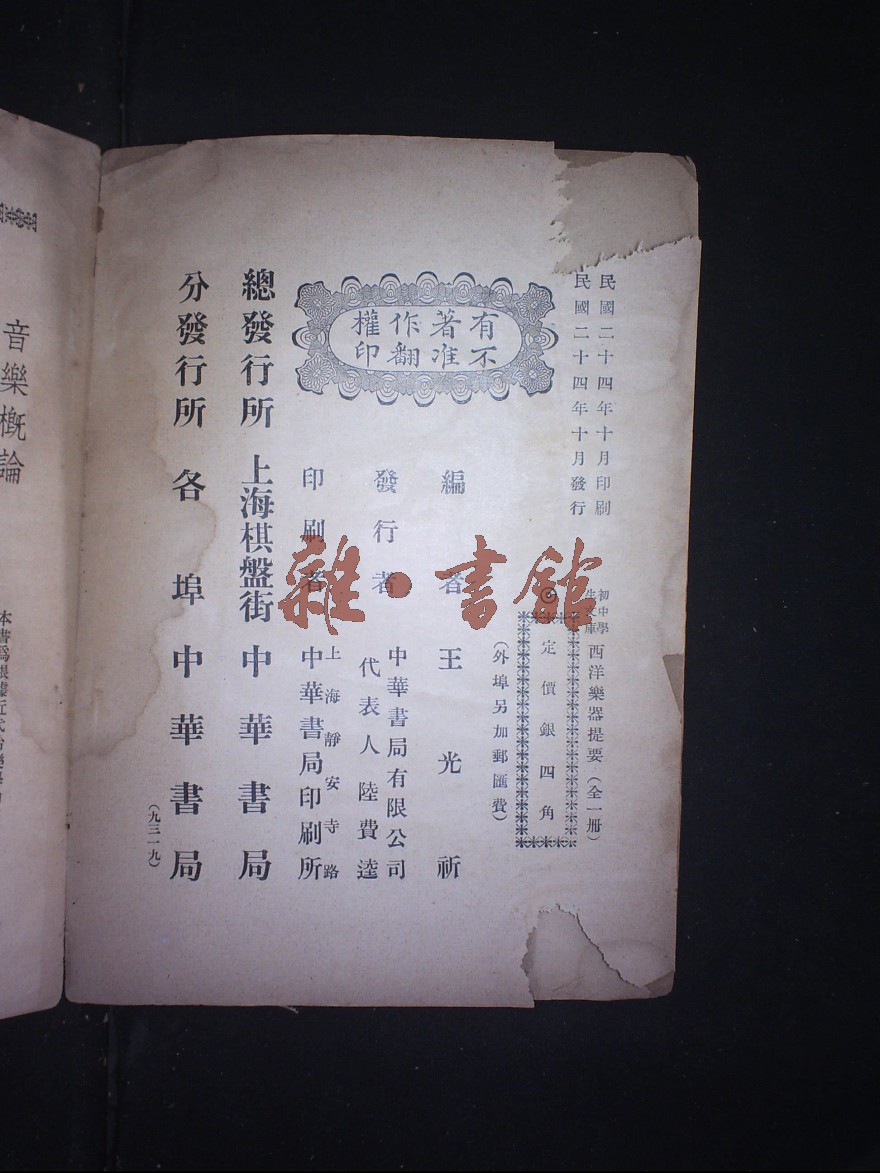 民國二十四年十月印刷
民國二十四年十月發行
初中學生文庫
西洋樂器提要（全一册）
◎定價銀四角
（外埠另加郵匯費）
有著作權
不准翻印
編者王光祈
發行者
中華書局有限公司
代表人陸費逵
印刷者
上海靜安寺路
中華書局印刷所
總發行所 上海棋盤街 中華書局
分發行所 各埠中華書局
（九三一九）
音樂概論
雜·書館